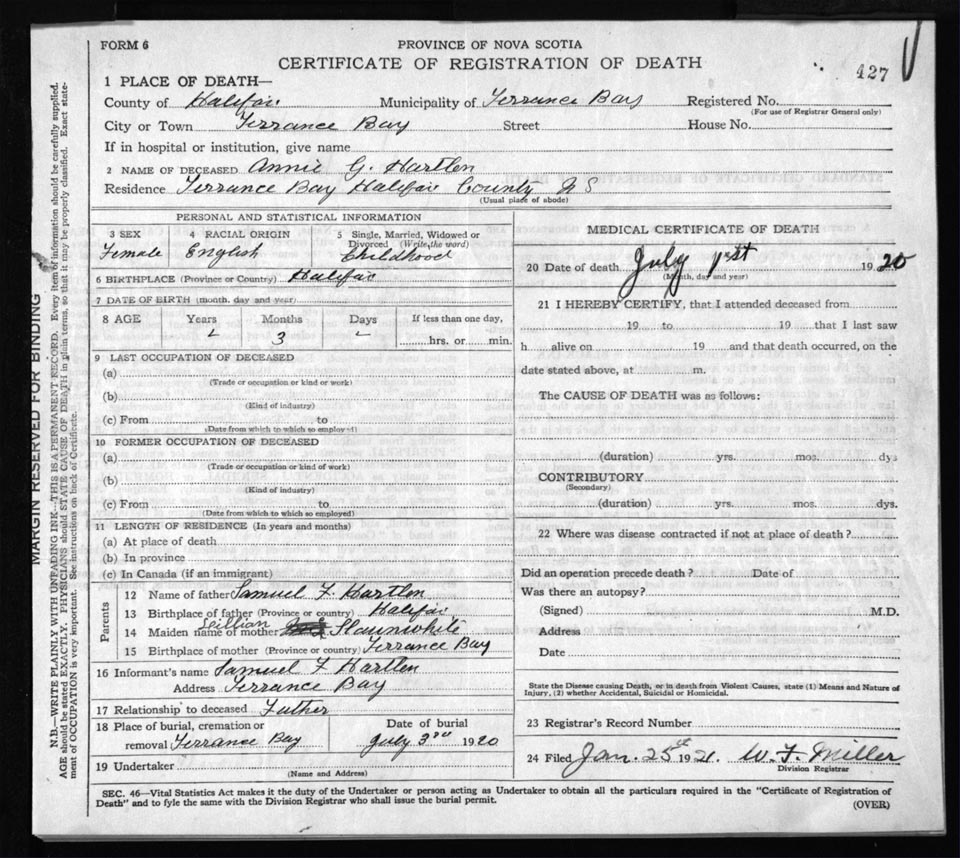 FORM 6
PROVINCE OF NOVA SCOTIA
CERTIFICATE OF REGISTRATION OF DEATH
427
1 PLACE OF DEATH—
County of Halifax Municipality of Terrance Bay Registered No.
(For use of Registrar General only)
City or Town Terrance Bay Street House No.
If in hospital or institution, give name
2 NAME OF DECEASED Annie G. Hartlen
Residence Terrance Bay Halifax County N S
(Usual place of abode)
PERSONAL AND STATISTICAL INFORMATION
3 SEX 4 RACIAL ORIGIN 5 Single, Married, Widowed or Divorced (Write the word)
Female English Childhood
6 BIRTHPLACE (Province or Country) Halifax
7 DATE OF BIRTH (month, day and year)
8 AGE Years Months Days If less than one day,
3 hrs. or min.
9 LAST OCCUPATION OF DECEASED
(a)
(Trade or occupation or kind or work)
(b)
(Kind of industry)
(c) From to
(Date from which to which so employed)
10 FORMER OCCUPATION OF DECEASED
(a)
(Trade or occupation or kind of work)
(b)
(Kind of industry)
(c) From to
(Date from which to which so employed)
11 LENGTH OF RESIDENCE (In years and months)
(a) At place of death
(b) In province
(c) In Canada (if an immigrant)
Parents
12 Name of father Samuel F. Hartlen
13 Birthplace of father (Province or country) Halifax
14 Maiden name of mother Lillian Slaunwhite
15 Birthplace of mother (Province or country) Terrance Bay
16 Informant's name Samuel F Hartlen
Address Terrance Bay
17 Relationship to deceased Father
18 Place of burial, cremation or removal Terrance Bay
Date of burial
July 3rd 1920
19 Undertaker
(Name and Address)
MEDICAL CERTIFICATE OF DEATH
20 Date of death July 1st 1920
(Month, day and year)
21 I HEREBY CERTIFY, that I attended deceased from
19 to 19 that I last saw
h alive on 19 and that death occurred, on the
date stated above, at m.
The CAUSE OF DEATH was as follows:
(duration) yrs. mos. dys
CONTRIBUTORY
(Secondary)
(duration) yrs. mos. dys.
22 Where was disease contracted if not at place of death?
Did an operation precede death? Date of
Was there an autopsy?
(Signed) M.D.
Address
Date
State the Disease causing Death, or in death from Violent Causes, state (1) Means and Nature of
Injury, (2) whether Accidental, Suicidal or Homicidal.
23 Registrar's Record Number
24 Filed Jan. 25th 1921. W. F. Miller
Division Registrar
SEC. 46—Vital Statistics Act makes it the duty of the Undertaker or person acting as Undertaker to obtain all the particulars required in the "Certificate of Registration of
Death" and to fyle the same with the Division Registrar who shall issue the burial permit.
(OVER)
MARGIN RESERVED FOR BINDING
N.B.—WRITE PLAINLY WITH UNFADING INK—THIS IS A PERMANENT RECORD. Every item of information should be carefully supplied.
AGE should be stated EXACTLY. PHYSICIANS should STATE CAUSE OF DEATH in plain terms, so that it may be properly classified. Exact state-
ment of OCCUPATION is very important. See instructions on back of Certificate.